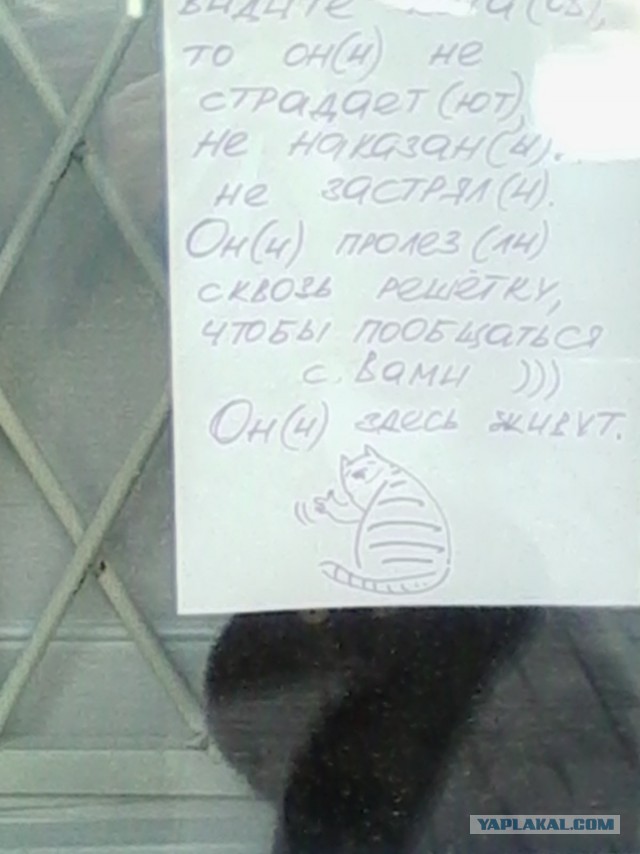 видите
то он(и) не
страдает(ют),
не наказан(ы).
не застрял(и).
Он(и) пролез(ли)
сквозь решётку,
чтобы пообщаться
с Вами )))
Он(и) здесь живут.
YAPLAKAL.COM